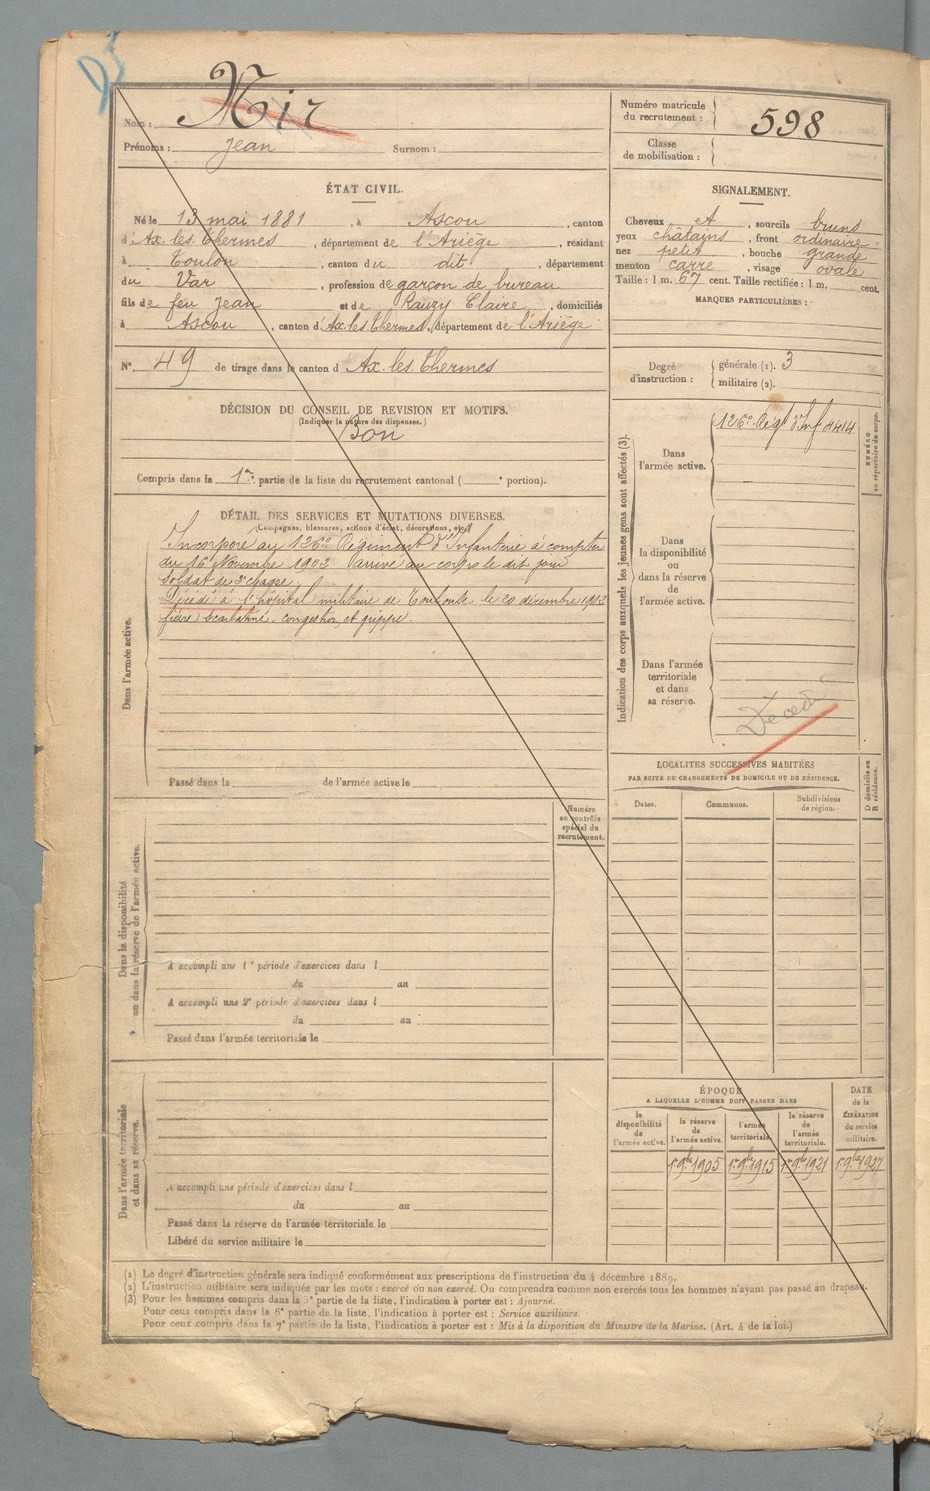 Nom : Mir
Prénoms : Jean Surnom :
Numéro matricule du recrutement : 598
Classe de mobilisation :
ÉTAT CIVIL.
Né le 13 mai 1881, à Ascou, canton
d'Ax-les-Thermes, département de l'Ariège, résidant
à Toulon, canton du dit, département
du Var, profession de garçon de bureau
fils de feu Jean et de Rauzy Claire, domiciliés
à Ascou, canton d'Ax les Thermes, département de l'Ariège
N° 49 de tirage dans le canton d'Ax-les-Thermes
SIGNALEMENT.
Cheveux et, sourcils bruns
yeux châtains, front ordinaire
nez petit, bouche grande
menton carré, visage ovale
Taille : 1 m. 67 cent. Taille rectifiée : 1 m. cent.
MARQUES PARTICULIÈRES :
Degré d'instruction : générale (1). 3
militaire (2).
DÉCISION DU CONSEIL DE REVISION ET MOTIFS.
(Indiquer la nature des dispenses.)
Bon
Compris dans la 1re partie de la liste du recrutement cantonal ( e portion).
DÉTAIL DES SERVICES ET MUTATIONS DIVERSES.
(Campagnes, blessures, actions d'éclat, décorations, etc.)
Dans l'armée active.
Incorporé au 126e Régiment d'Infanterie à compter
du 16 Novembre 1902 Arrivé au corps le dit jour
soldat de 2e classe.
Décédé à l'hôpital militaire de Toulouse le 20 décembre 1902
fièvre scarlatine, congestion et grippe.
Passé dans la de l'armée active le
Indication des corps auxquels les jeunes gens sont affectés (3).
Dans l'armée active.
126e Régt d'Inf
NUMÉRO au répertoire du corps.
Dans la disponibilité ou dans la réserve de l'armée active.
Dans l'armée territoriale et dans sa réserve.
Décédé
LOCALITÉS SUCCESSIVES HABITÉES
PAR SUITE DE CHANGEMENTS DE DOMICILE OU DE RÉSIDENCE.
Dates. Communes. Subdivisions de région. D domicile ou R résidence.
Numéro au contrôle spécial du recrutement.
Dans la disponibilité ou dans la réserve de l'armée active.
A accompli une 1re période d'exercices dans l
du au
A accompli une 2e période d'exercices dans l
du au
Passé dans l'armée territoriale le
Dans l'armée territoriale et dans sa réserve.
A accompli une période d'exercices dans l
du au
Passé dans la réserve de l'armée territoriale le
Libéré du service militaire le
ÉPOQUE
A LAQUELLE L'HOMME DOIT PASSER DANS
la disponibilité de l'armée active.
la réserve de l'armée active.
l'armée territoriale.
la réserve de l'armée territoriale.
DATE de la LIBÉRATION du service militaire.
1r 9bre 1905 1r 9bre 1915 1r 9bre 1921 1r 9bre 1927
(1) Le degré d'instruction générale sera indiqué conformément aux prescriptions de l'instruction du 4 décembre 1889.
(2) L'instruction militaire sera indiquée par les mots : exercé ou non exercé. On comprendra comme non exercés tous les hommes n'ayant pas passé au drapeau.
(3) Pour les hommes compris dans la 5e partie de la liste, l'indication à porter est : Ajourné.
Pour ceux compris dans la 6e partie de la liste, l'indication à porter est : Service auxiliaire.
Pour ceux compris dans la 7e partie de la liste, l'indication à porter est : Mis à la disposition du Ministre de la Marine. (Art. 4 de la loi.)